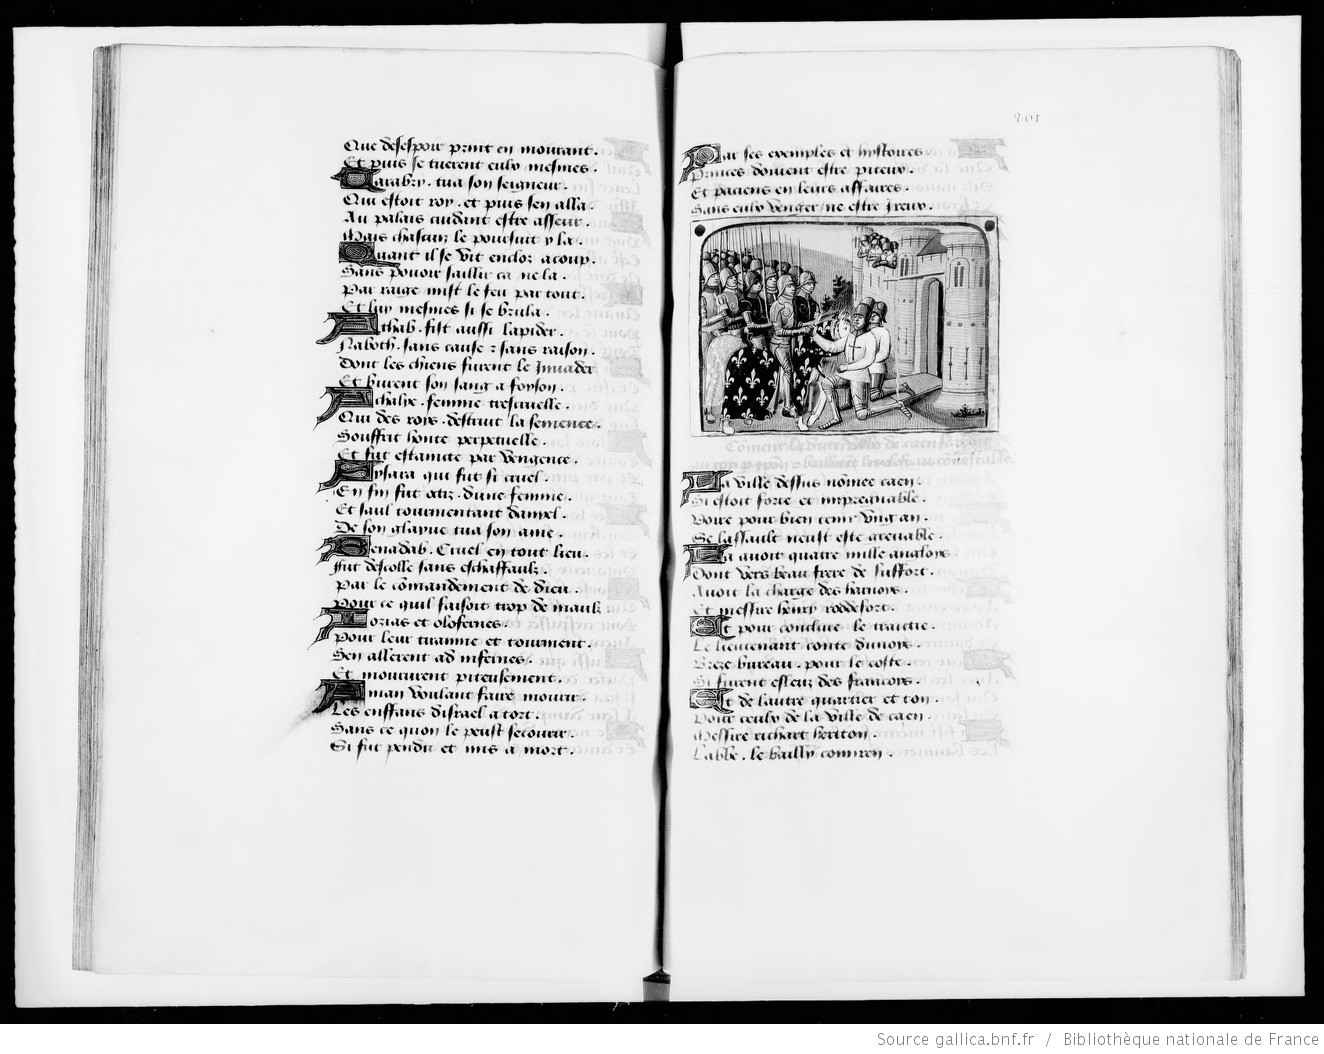 Que desespoir print en mourant.
Et puis se tuerent eulx mesmes.
Zarabry. tua son seigneur.
Qui estoit roy. et puis sen alla.
Au palais cuidant estre asseur.
Mais chascun le poursuit y la.
Quant il se vit enclos acoup.
Sans pouoir saillir ca ne la.
Par raige mist le feu par tout.
Et luy mesmes si se brula.
Athab. fist aussi lapider.
Naboth. sans cause z sans raison.
Dont les chiens furent le
Et burent son sang a foyson.
Athalye. femme trescruelle.
Qui des roys. destruit la semence.
Souffrit honte perpetuelle.
Et fut estainte par vengence.
Zysara qui fut si cruel.
En fin fut occiz. dune femme.
Et saul tourmentant danyel.
De son glayue tua son ame.
Benadab. Cruel en tout lieu.
Fut descolle sans eschaffaulx.
Par le cōmandement de dieu.
Pour ce quil faisoit trop de maulx
et olofernes.
Pour leur tirannie et tourment.
Sen allerent ad infernes.
Et moururent piteusement.
Aman voulant faire mourir.
Les enffans disrael a tort.
Sans ce quon le peust secourir.
Si fut pendu et mis a mort.
201
Par ses exemples et hystoires
Princes doiuent estre piteux.
Et paciens en leurs affaires.
Sans eulx venger ne estre Ireux.
Cōment la dicte ville de caen
La ville dessus nōmee caen.
Si estoit forte et impregnable.
Voire pour bien tenir vng an.
Se lassault neust este greuable.
La auoit quatre mille angloys
Dont vers beau frere de suffort.
Auoit la charge des harnoys.
Et messire henry roddefort.
Et pour conclure le traictie.
Le lieutenant conte dunoys.
Breze bureau. pour le coste.
Si furent esseuz des francoys.
Et de lautre quartier et ton.
Pour ceulx de la ville de caen.
Messire richart heriton.
Labbe. le bailly commren.
Source gallica.bnf.fr / Bibliothèque nationale de France